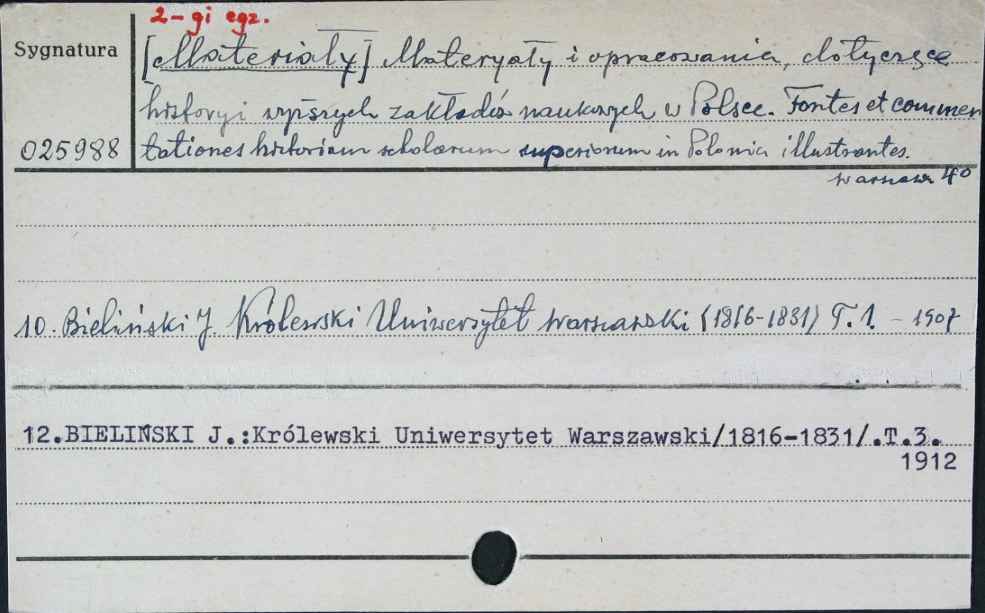 2-gi egz.
Sygnatura
[Materiały] Materyały i opracowania, dotyczące
historyi wyższych zakładów naukowych w Polsce. Fontes et commen
025988 tationes historiam scholarum superiorum in Polonia illustrantes.
Warszawa 4°
10. Bieliński J. Królewski Uniwersytet Warszawski (1816-1831) T. 1. - 1907
12.BIELIŃSKI J.:Królewski Uniwersytet Warszawski/1816-1831/.T.3.
1912